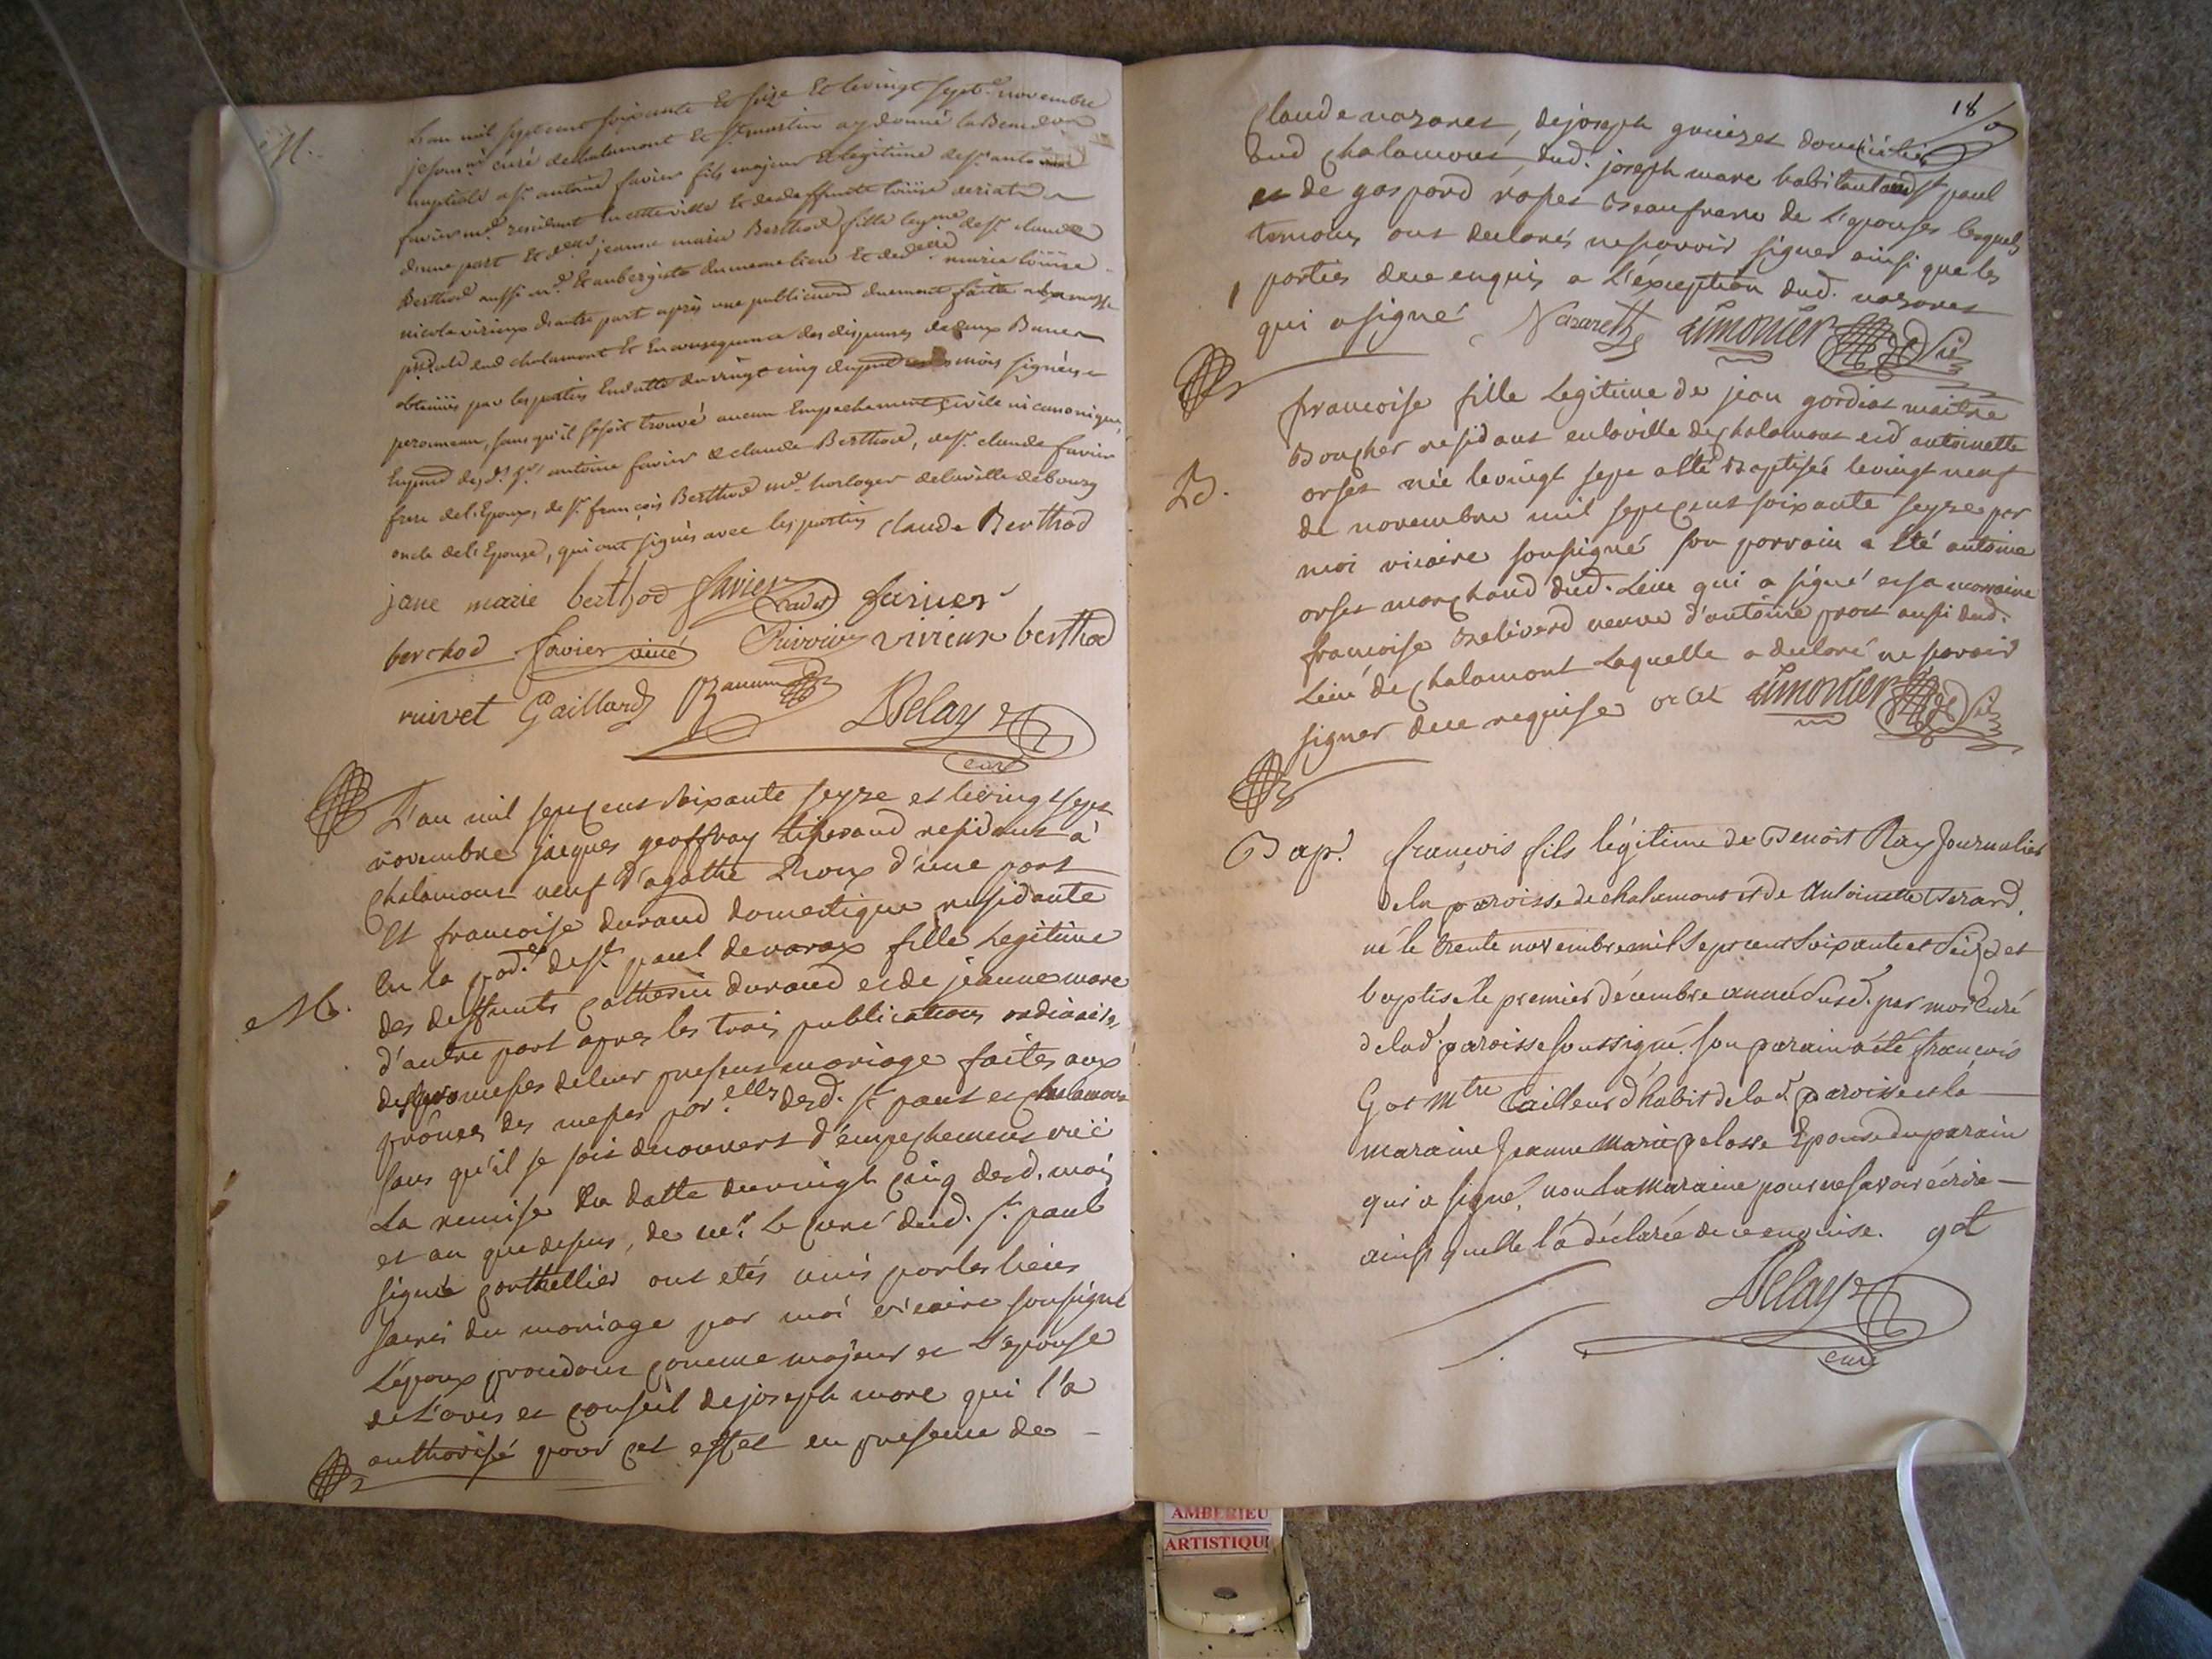 M.
L'an mil sept cent soixante et seize et le vingt sept novembre
je soussné curé de chalamont et st martin ay donné la Bened.on
nuptiale a sr antoine favier fils majeur et legitime de sr antoine
favier md. resident en cette ville et de deffunte loüise
d'une part et dlle jeanne marie Berthod fille legme de sr claude
Berthod aussi md. et aubergiste du meme lieu et de dlle marie loüise
nicole vivieux d'autre part après une publication duement faite
aud chalamont et en consequence des dispenses de deux Bancs
obtenües par les parties en datte du vingt cinq du mois signées
peronneau, sans qu'il se soit trouvé aucun Empechement civile ni canonique,
En pnce des srs antoine favier et claude Berthod, de sr claude favier
frere de l'Epoux, de sr françois Berthod md. horloger de la ville de bourg
oncle de l'Epouse, qui ont signés avec les parties claude Berthod
jane marie berthod favier cadet favier
berthod favier ainé vivieux berthod
ruivet Gaillard
Delay
curé
L'an mil sept cent soixante seyze et le vingt sept
novembre jacques geoffray tisserand residant à
Chalamont veuf d'agathe Proux d'une part
Et francoise durand domestique residante
M.
En la pade. de st. paul de varax fille Legitime
des deffunts Catherin durand et de jeanne mare
d'autre part apres les trois publications ordinaires
des promesses de leur present mariage faites aux
prônes des messes par.elles desd. st paul et chalamont
sans qu'il se soit decouvert d'empechement vu
La remise En datte du vingt cinq desd. mois
et an que dessus, de mr. Le curé dud. st. paul
signée porthellier ont etés unis par les liens
sacrés du mariage par moi vicaire soussigné
L'époux procedant comme majeur et L'epouse
de L'avis et conseil de joseph mare qui l'a
authorisé pour cet effet en presence de
18
Claude nazaret, de joseph domicilié
aud chalamont, dud. joseph mare habitant aud st paul
et de gaspard rapet Beaufrere de L'epouse lesquels
temoins ont declarés ne scavoir signer ainsi que les
parties de ce enquis a L'exception dud. nazaret
qui a signé Nazareth Limonier
francoise fille Legitime de jean gordiat maitre
Boucher residant en la ville de chalamont et d'antoinette
B.
orset née le vingt sept a eté Baptisée le vingt neuf
de novembre mil sept cent soixante seyze par
moi vicaire soussigné son parrain a eté antoine
orset marchand dud. Lieu qui a signé et sa marraine
francoise veuve d'antoine prost aussi dud.
Lieu de chalamont Laquelle a declaré ne scavoir
signer de ce requise orset Limonier
Bap. françois fils légitime de Benoit Ray Journalier
de la paroisse de chalamont et de Antoinette
né le trente novembre mil sept cent soixante et seize et
baptisé le premier décembre année susd. par moi Curé
de lad. paroisse soussigné. son parain a été françois
Got Mtre Tailleur d'habit de lad. paroisse et la
maraine Jeanne Marie pelosse Epouse du parain
qui a signé, non la Maraine pour ne savoir écrire
ainsi quelle l'a déclarée de ce enquise. got
Delay
curé
AMBERIEU
ARTISTIQU